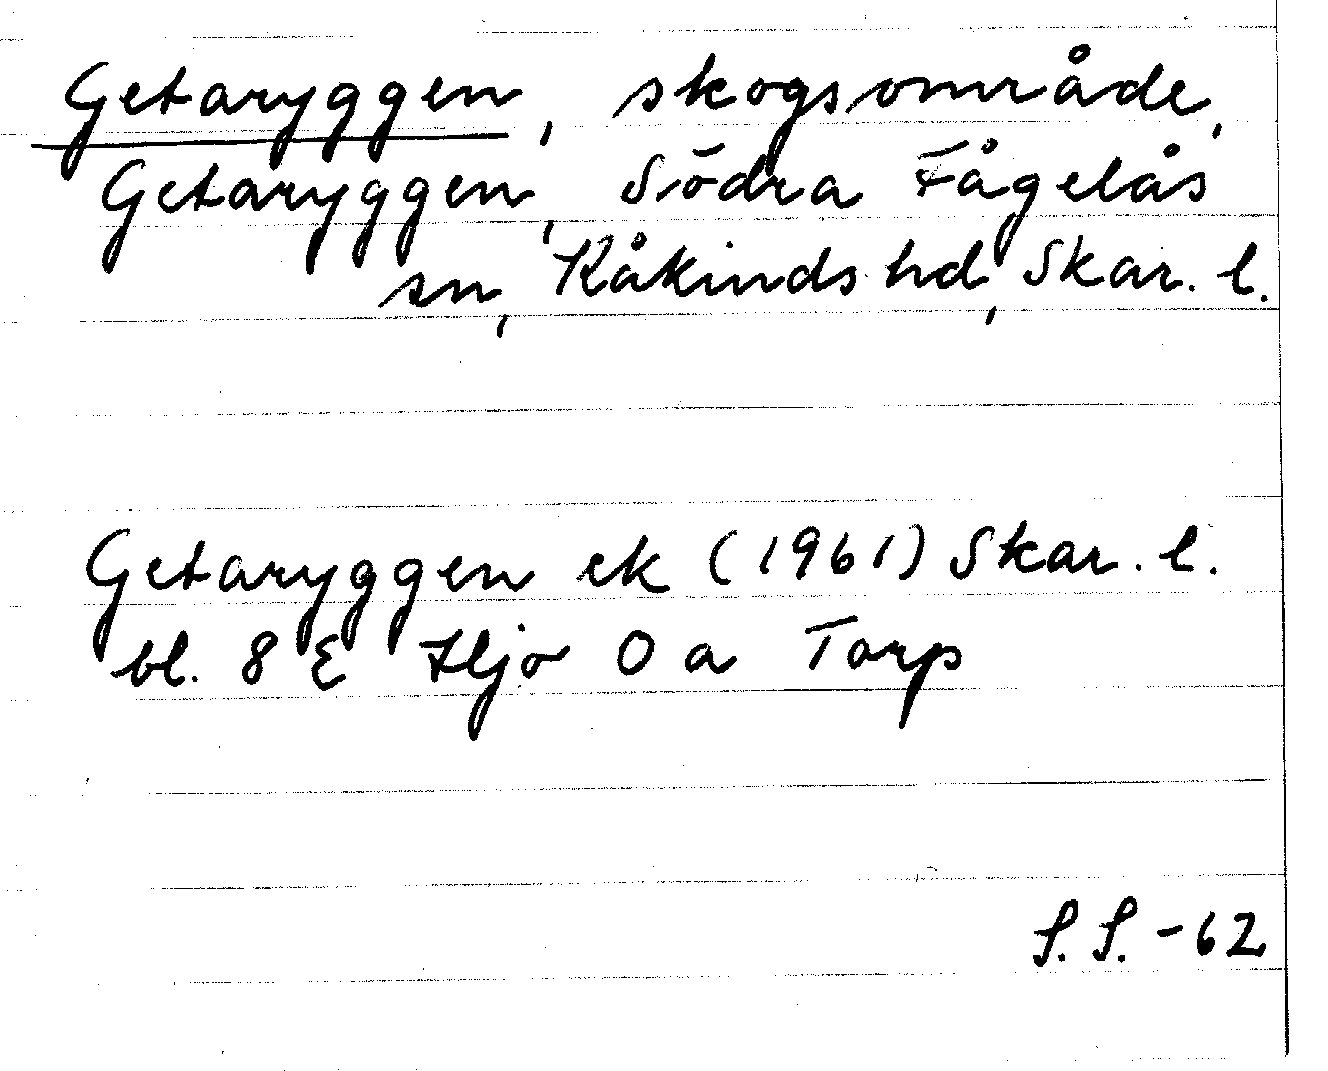 Getaryggen, skogsområde,
Getaryggen, Södra Fågelås
sn, Kåkinds hd, Skar. l.
Getaryggen ek (1961) Skar. l.
bl. 8 E Hjo 0 a Torp
S. S. -62